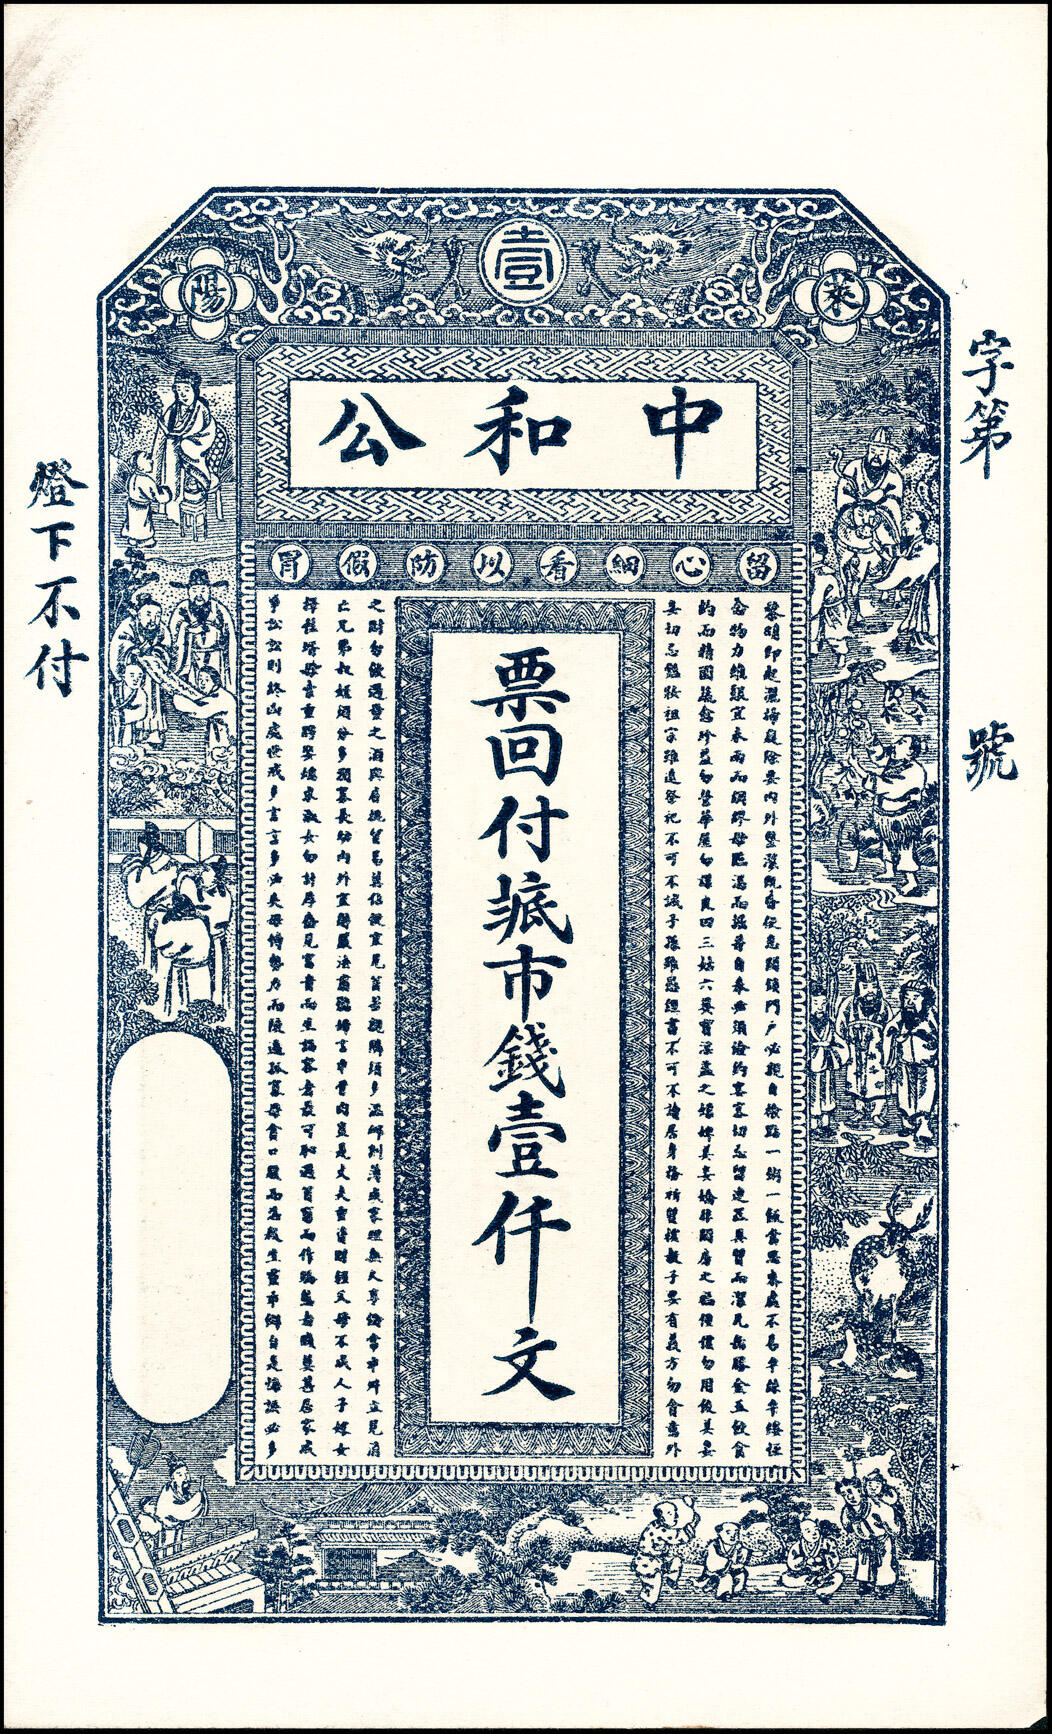 壹
萊陽
中和公
留心細看以防假冒
字第 號
黎明即起灑掃庭除要內外整潔既昏便息關鎖門戶必親自檢點一粥一飯當思來處不易半絲半縷恒
念物力維艱宜未雨而綢繆毋臨渴而掘井自奉必須儉約宴客切忌留連器具質而潔瓦缶勝金玉飲食
約而精園蔬愈珍饈勿營華屋勿謀良田三姑六婆實淫盜之媒婢美妾嬌非閨房之福僮僕勿用俊美妻
妾切忌豔妝祖宗雖遠祭祀不可不誠子孫雖愚經書不可不讀居身務期質樸教子要有義方勿貪意外
票回付底市錢壹仟文
之財勿飲過量之酒與肩挑貿易莫佔便宜見貧苦親隣須多溫卹刻薄成家理無久享倫常乖舛立見消
亡兄弟叔姪須分多潤寡長幼內外宜辭嚴法肅聽婦言乖骨肉豈是丈夫重資財輕父母不成人子嫁女
擇佳壻毋索重聘娶媳求淑女勿計厚奩見富貴而生諂容者最可恥遇貧窮而作驕態者賤莫甚居家戒
爭訟訟則終凶處世戒多言言多必失毋恃勢力而凌逼孤寡毋貪口腹而恣殺生靈乖僻自是悔誤必多
燈下不付